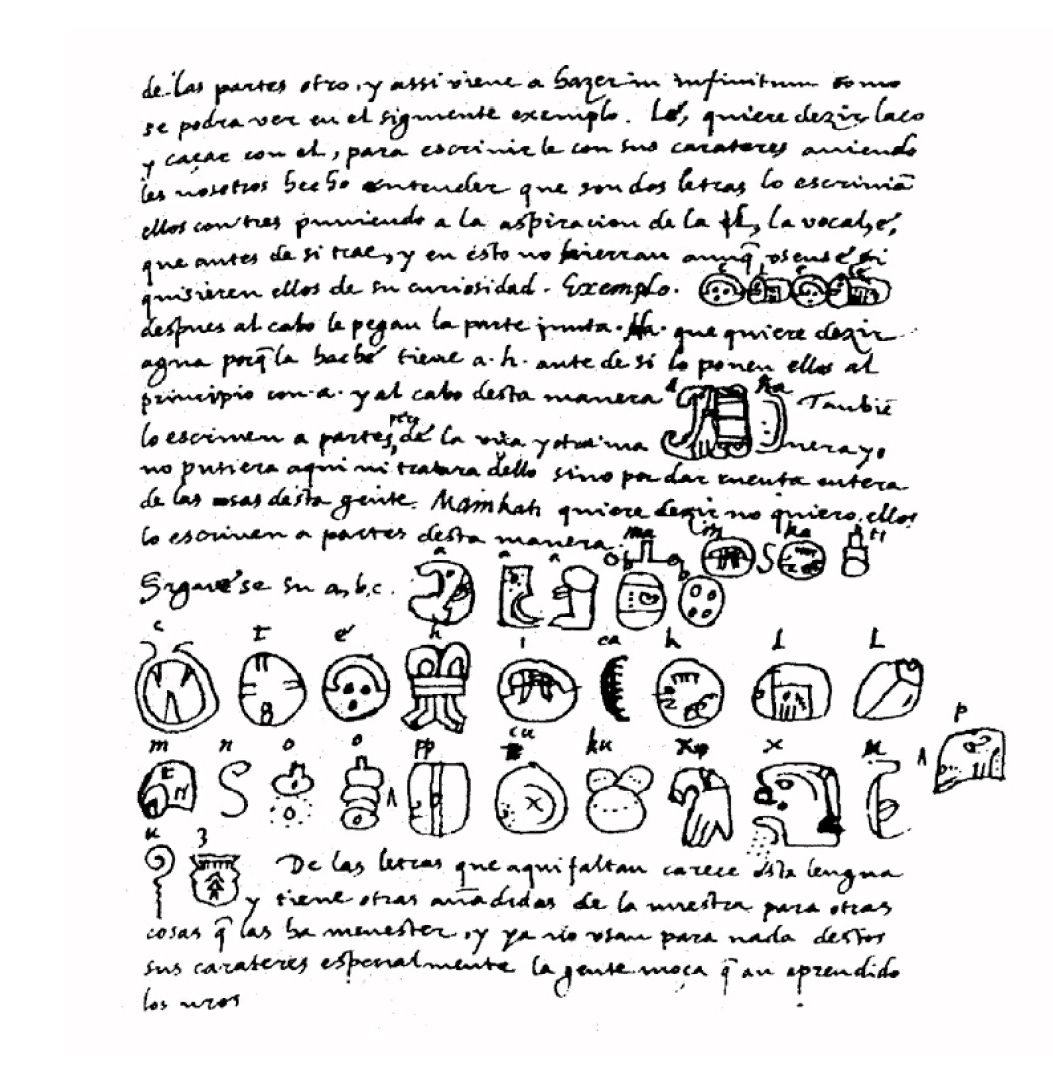 de las partes otro, y assi viene a hazer in infinitum como
se podra ver en el siguiente exemplo. Lé, quiere dezir laço
y caçar con el, para escrivirle con sus carateres aviendo
les nosotros hecho entender que son dos letras lo escrivian
ellos con tres puniendo a la aspiracion de la l, la vocal, é,
que antes de si trae, y en ésto no hierran aunq̃ usense si
quisieren ellos de su curiosidad. Exemplo. e l e le
despues al cabo le pegan la parte junta. Ha. que quiere dezir
agua porq̃ la haché tiene a. h. ante de si lo ponen ellos al
principio con. a. y al cabo desta manera a ha Tanbié
lo escriven a partes, pero de la una y otra ma nera yo
no pusiera aqui ni tratara dello sino por dar cuenta entera
de las cosas desta gente. Mainkati quiere dezir no quiero, ellos
lo escriven a partes desta manera. ma i n ka ti
Siguese su a, b, c. a a a b b
c t é h i ca k l l
m n o o pp cu ku x x u p
u z De las letras que aqui faltan carece ésta lengua
y tiene otras añadidas de la nuestra para otras
cosas q̃ las ha menester, y ya no usan para nada destos
sus carateres especialmente la gente moça q̃ an aprendido
los nros